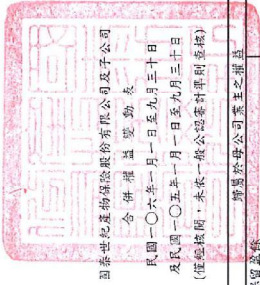 國泰世紀產物保險股份有限公司及子公司
合併權益變動表
民國一〇六年一月一日至九月三十日
及民國一〇五年一月一日至九月三十日
(僅經核閱，未依一般公認審計準則查核)
歸屬於母公司業主之權益
保留盈餘